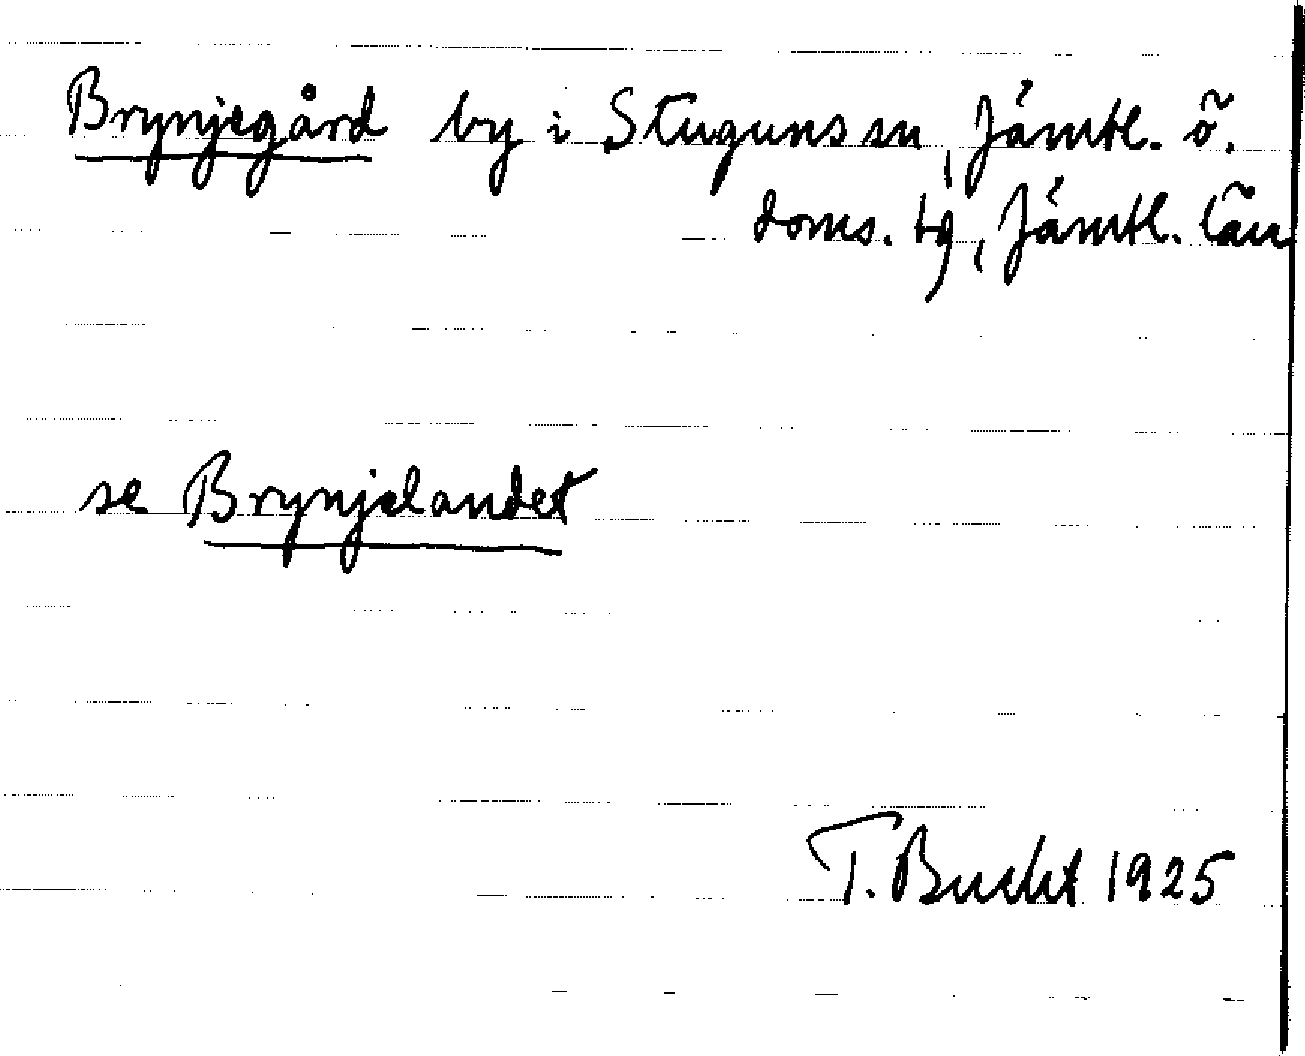 Brynjegård by i Stuguns sn, Jämtl. ö.
doms. tg, Jämtl. län
se Brynjelandet
T. Bucht 1925